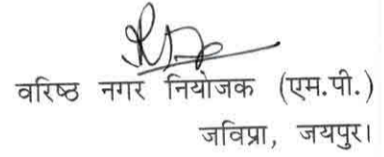 वरिष्ठ नगर नियोजक (एम.पी.)
जविप्रा, जयपुर।